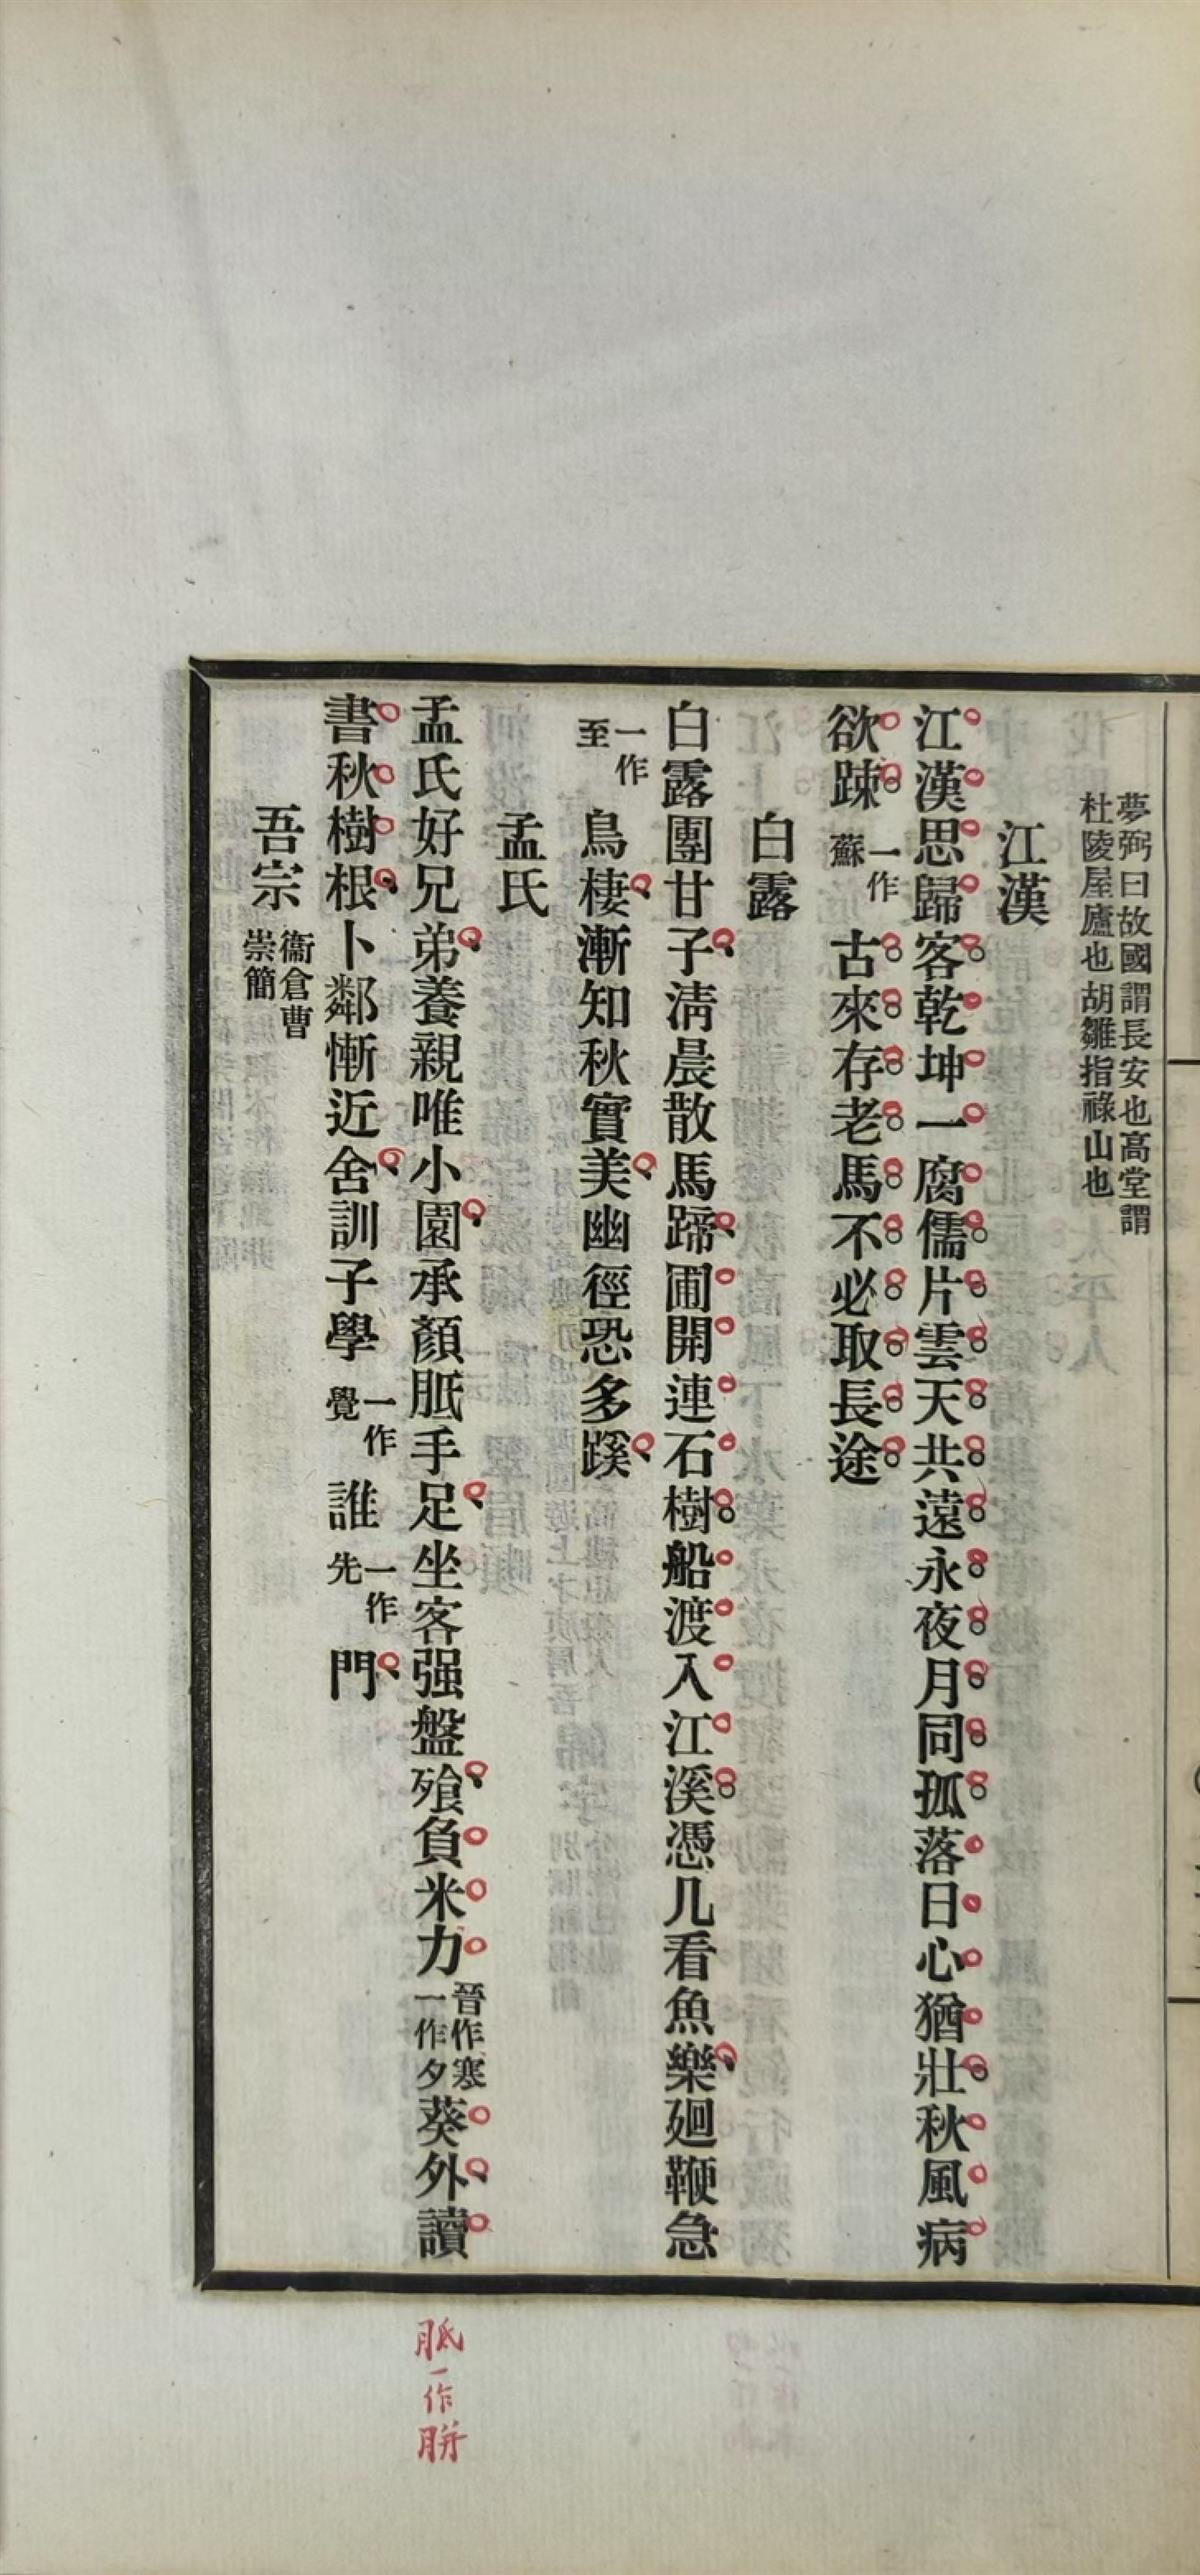 夢弼曰故國謂長安也高堂謂
杜陵屋廬也胡雛指祿山也
江漢
江漢思歸客乾坤一腐儒片雲天共遠永夜月同孤落日心猶壯秋風病
欲踈一作蘇古來存老馬不必取長途
白露
白露團甘子淸晨散馬蹄圃開連石樹船渡入江溪憑几看魚樂廻鞭急
一作至鳥棲漸知秋實美幽徑恐多蹊
孟氏
孟氏好兄弟養親唯小園承顏胝手足坐客强盤飱負米力晉作寒一作夕葵外讀
書秋樹根卜鄰慚近舍訓子學一作覺誰一作先門
吾宗衞倉曹崇簡
胝一作胼